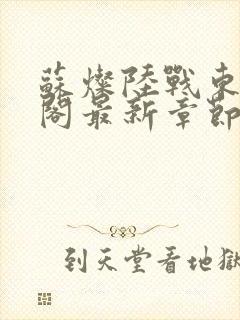 蘇燦陸戰東
閣最新章節
到天堂看地獄